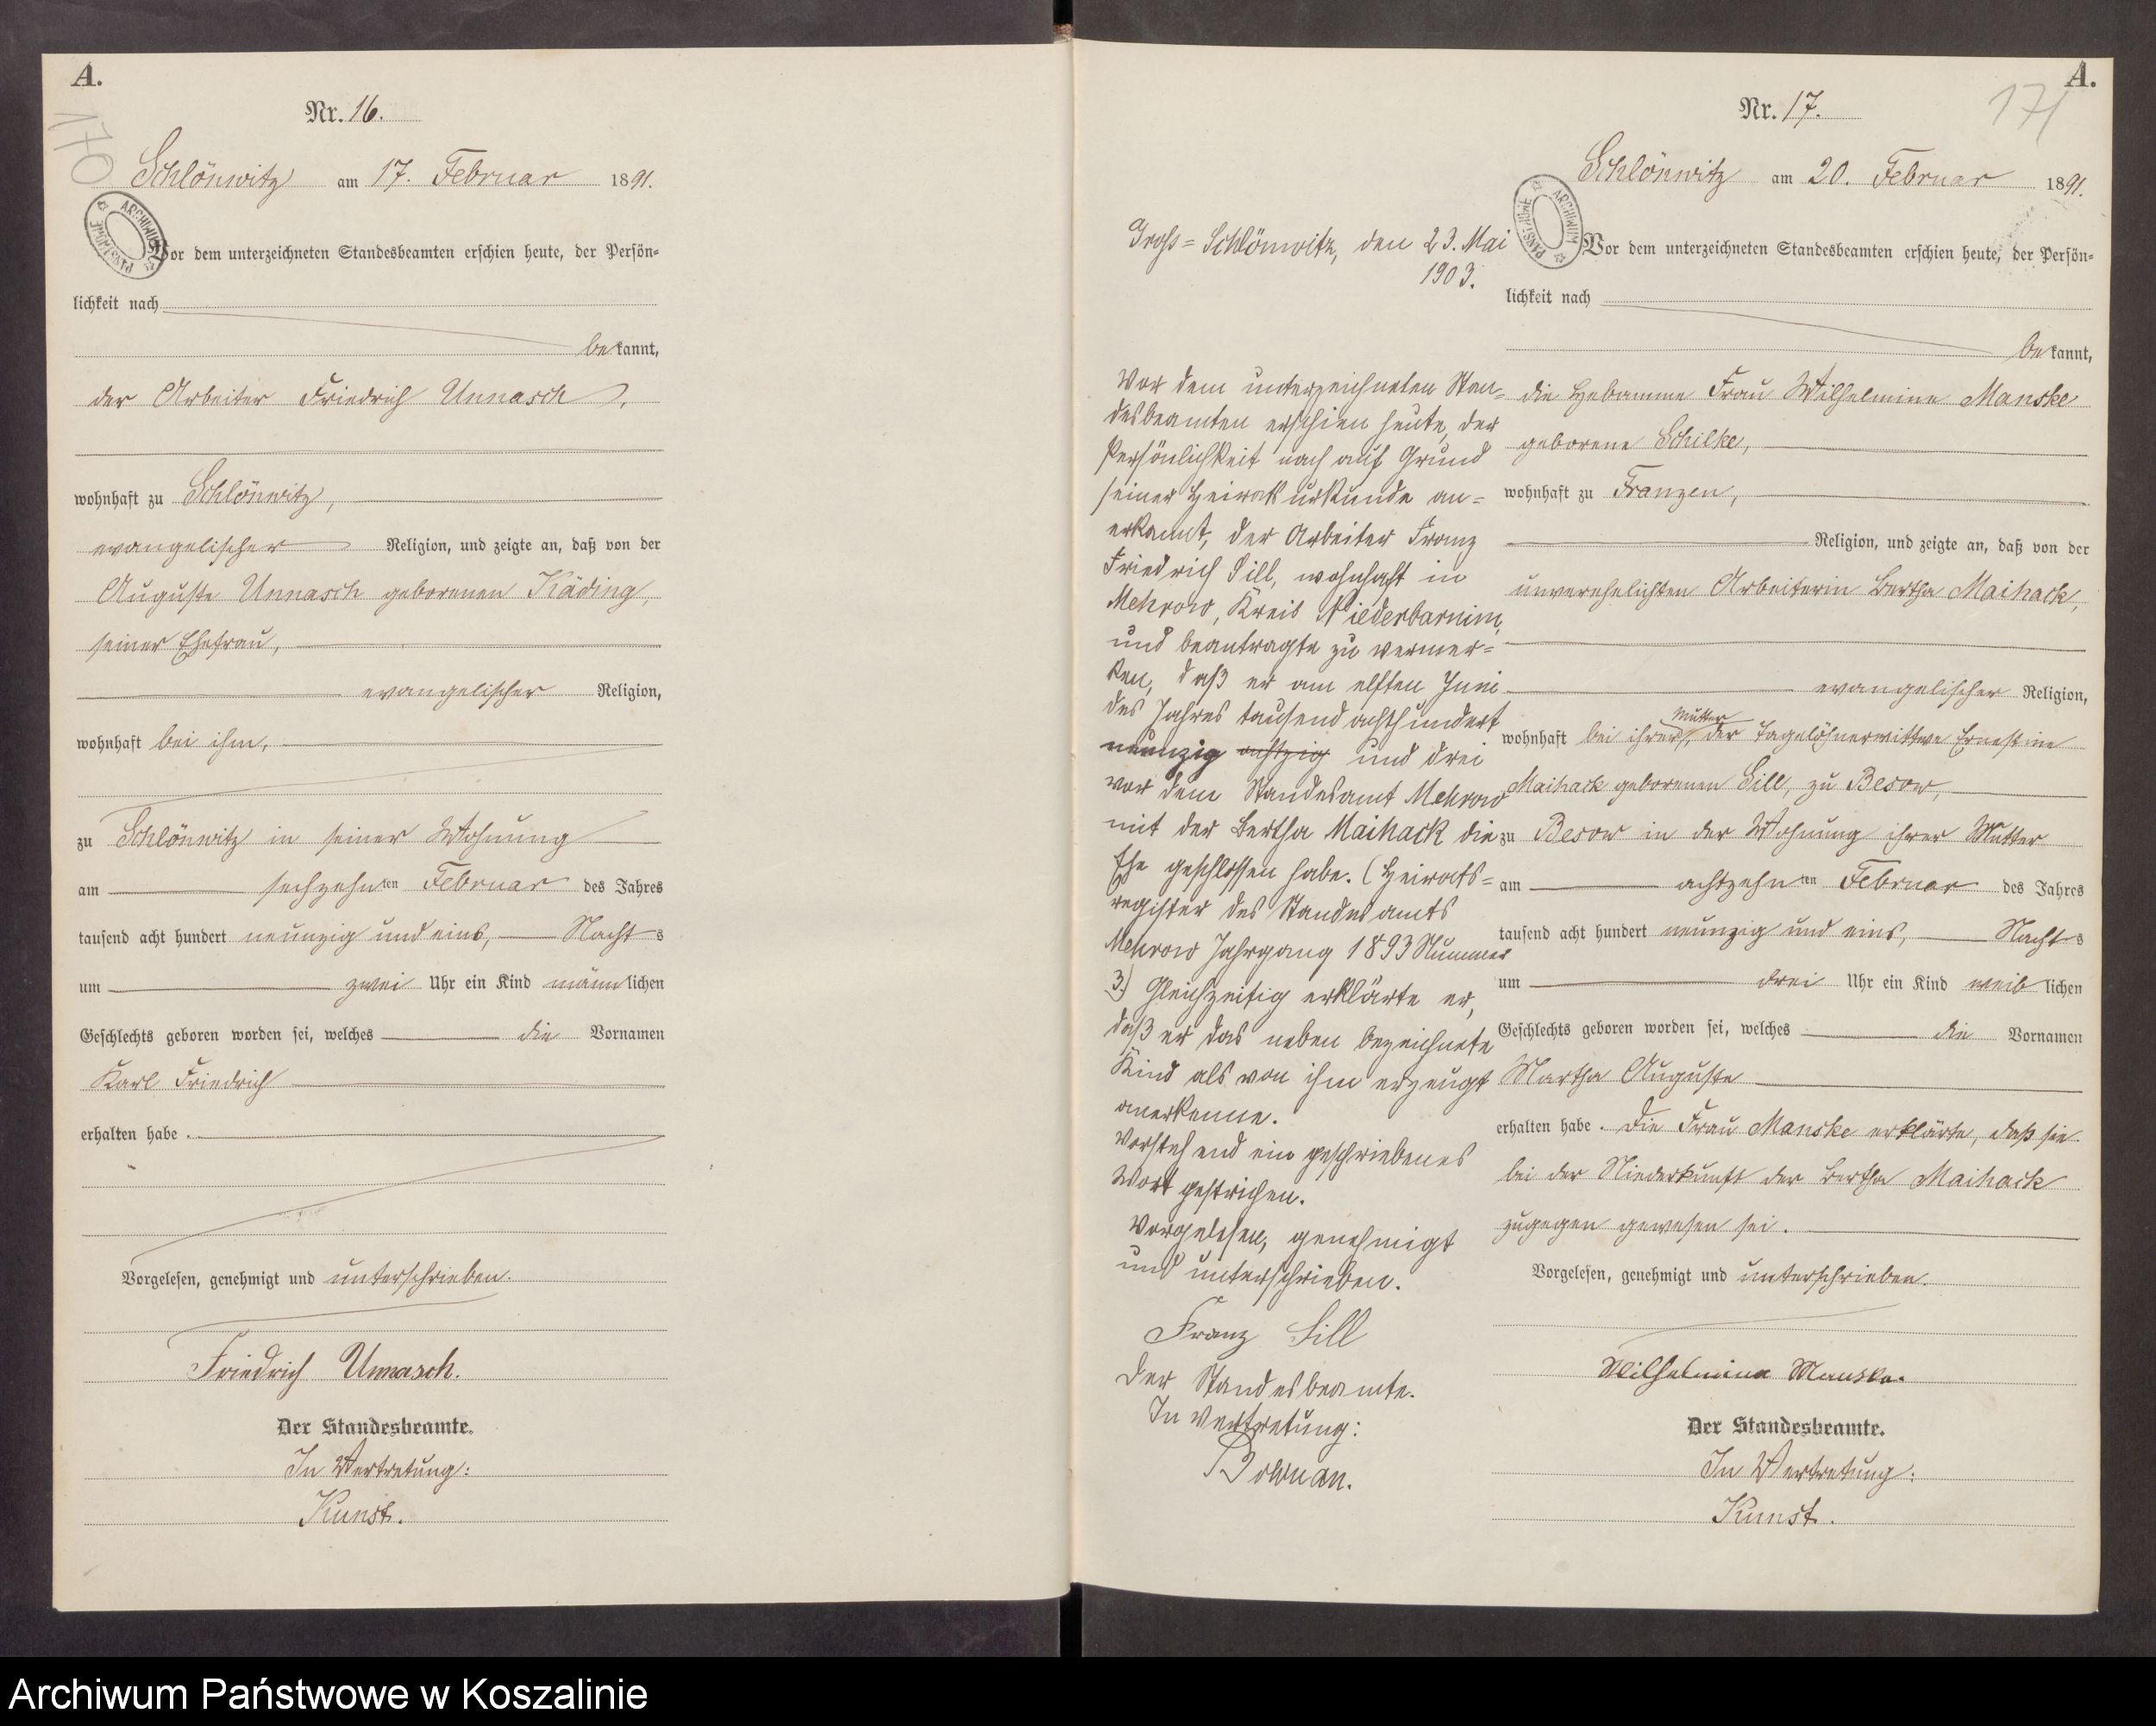 A.
170
Nr. 16.
Schlönwitz am 17. Februar 1891.
Vor dem unterzeichneten Standesbeamten erschien heute, der Persön-
lichkeit nach
bekannt,
der Arbeiter Friedrich Unnasch,
wohnhaft zu Schlönwitz,
evangelischer Religion, und zeigte an, daß von der
Auguste Unnasch geborenen Käding,
seiner Ehefrau,
evangelischer Religion,
wohnhaft bei ihm,
zu Schlönwitz in seiner Wohnung
am sechzehnten Februar des Jahres
tausend acht hundert neunzig und eins, Nachts
um zwei Uhr ein Kind männlichen
Geschlechts geboren worden sei, welches die Vornamen
Karl Friedrich
erhalten habe.
Vorgelesen, genehmigt und unterschrieben.
Friedrich Unnasch.
Der Standesbeamte.
In Vertretung:
Kunst.
Gross=Schlönwitz, den 23. Mai
1903.
Vor dem unterzeichneten Stan-
desbeamten erschien heute, der
Persönlichkeit nach auf Grund
seiner Heiratsurkunde an=
erkannt, der Arbeiter Franz
Friedrich Sill, wohnhaft in
Mehrow, Kreis Niederbarnim,
und beantragte zu vermer=
ken, daß er am elften Juni
des Jahres tausend achthundert
neunzig achtzig und drei
vor dem Standesamt Mehrow
mit der Bertha Maihack die
Ehe geschlossen habe. (Heirats=
register des Standesamts
Mehrow Jahrgang 1893 Nummer
3.) Gleichzeitig erklärte er,
daß er das neben bezeichnete
Kind als von ihm erzeugt
anerkenne.
Vorstehend ein geschriebenes
Wort gestrichen.
Vorgelesen, genehmigt
und unterschrieben.
Franz Sill
Der Standesbeamte.
In Vertretung:
A.
171
Nr. 17.
Schlönwitz am 20. Februar 1891.
Vor dem unterzeichneten Standesbeamten erschien heute, der Persön-
lichkeit nach
bekannt,
die Hebamme Frau Wilhelmine Manske
geborene Schilke,
wohnhaft zu Franzen,
Religion, und zeigte an, daß von der
unverehelichten Arbeiterin Bertha Maihack,
evangelischer Religion,
wohnhaft bei ihrer Mutter, der Tagelöhnerwittwe Ernestine
Maihack geborenen Sill, zu Besow,
zu Besow in der Wohnung ihrer Mutter
am achtzehnten Februar des Jahres
tausend acht hundert neunzig und eins, Nachts
um drei Uhr ein Kind weiblichen
Geschlechts geboren worden sei, welches die Vornamen
Martha Auguste
erhalten habe. Die Frau Manske erklärte, daß sie
bei der Niederkunft der Bertha Maihack
zugegen gewesen sei.
Vorgelesen, genehmigt und unterschrieben.
Wilhelmine Manske.
Der Standesbeamte.
In Vertretung:
Kunst.
Archiwum Państwowe w Koszalinie